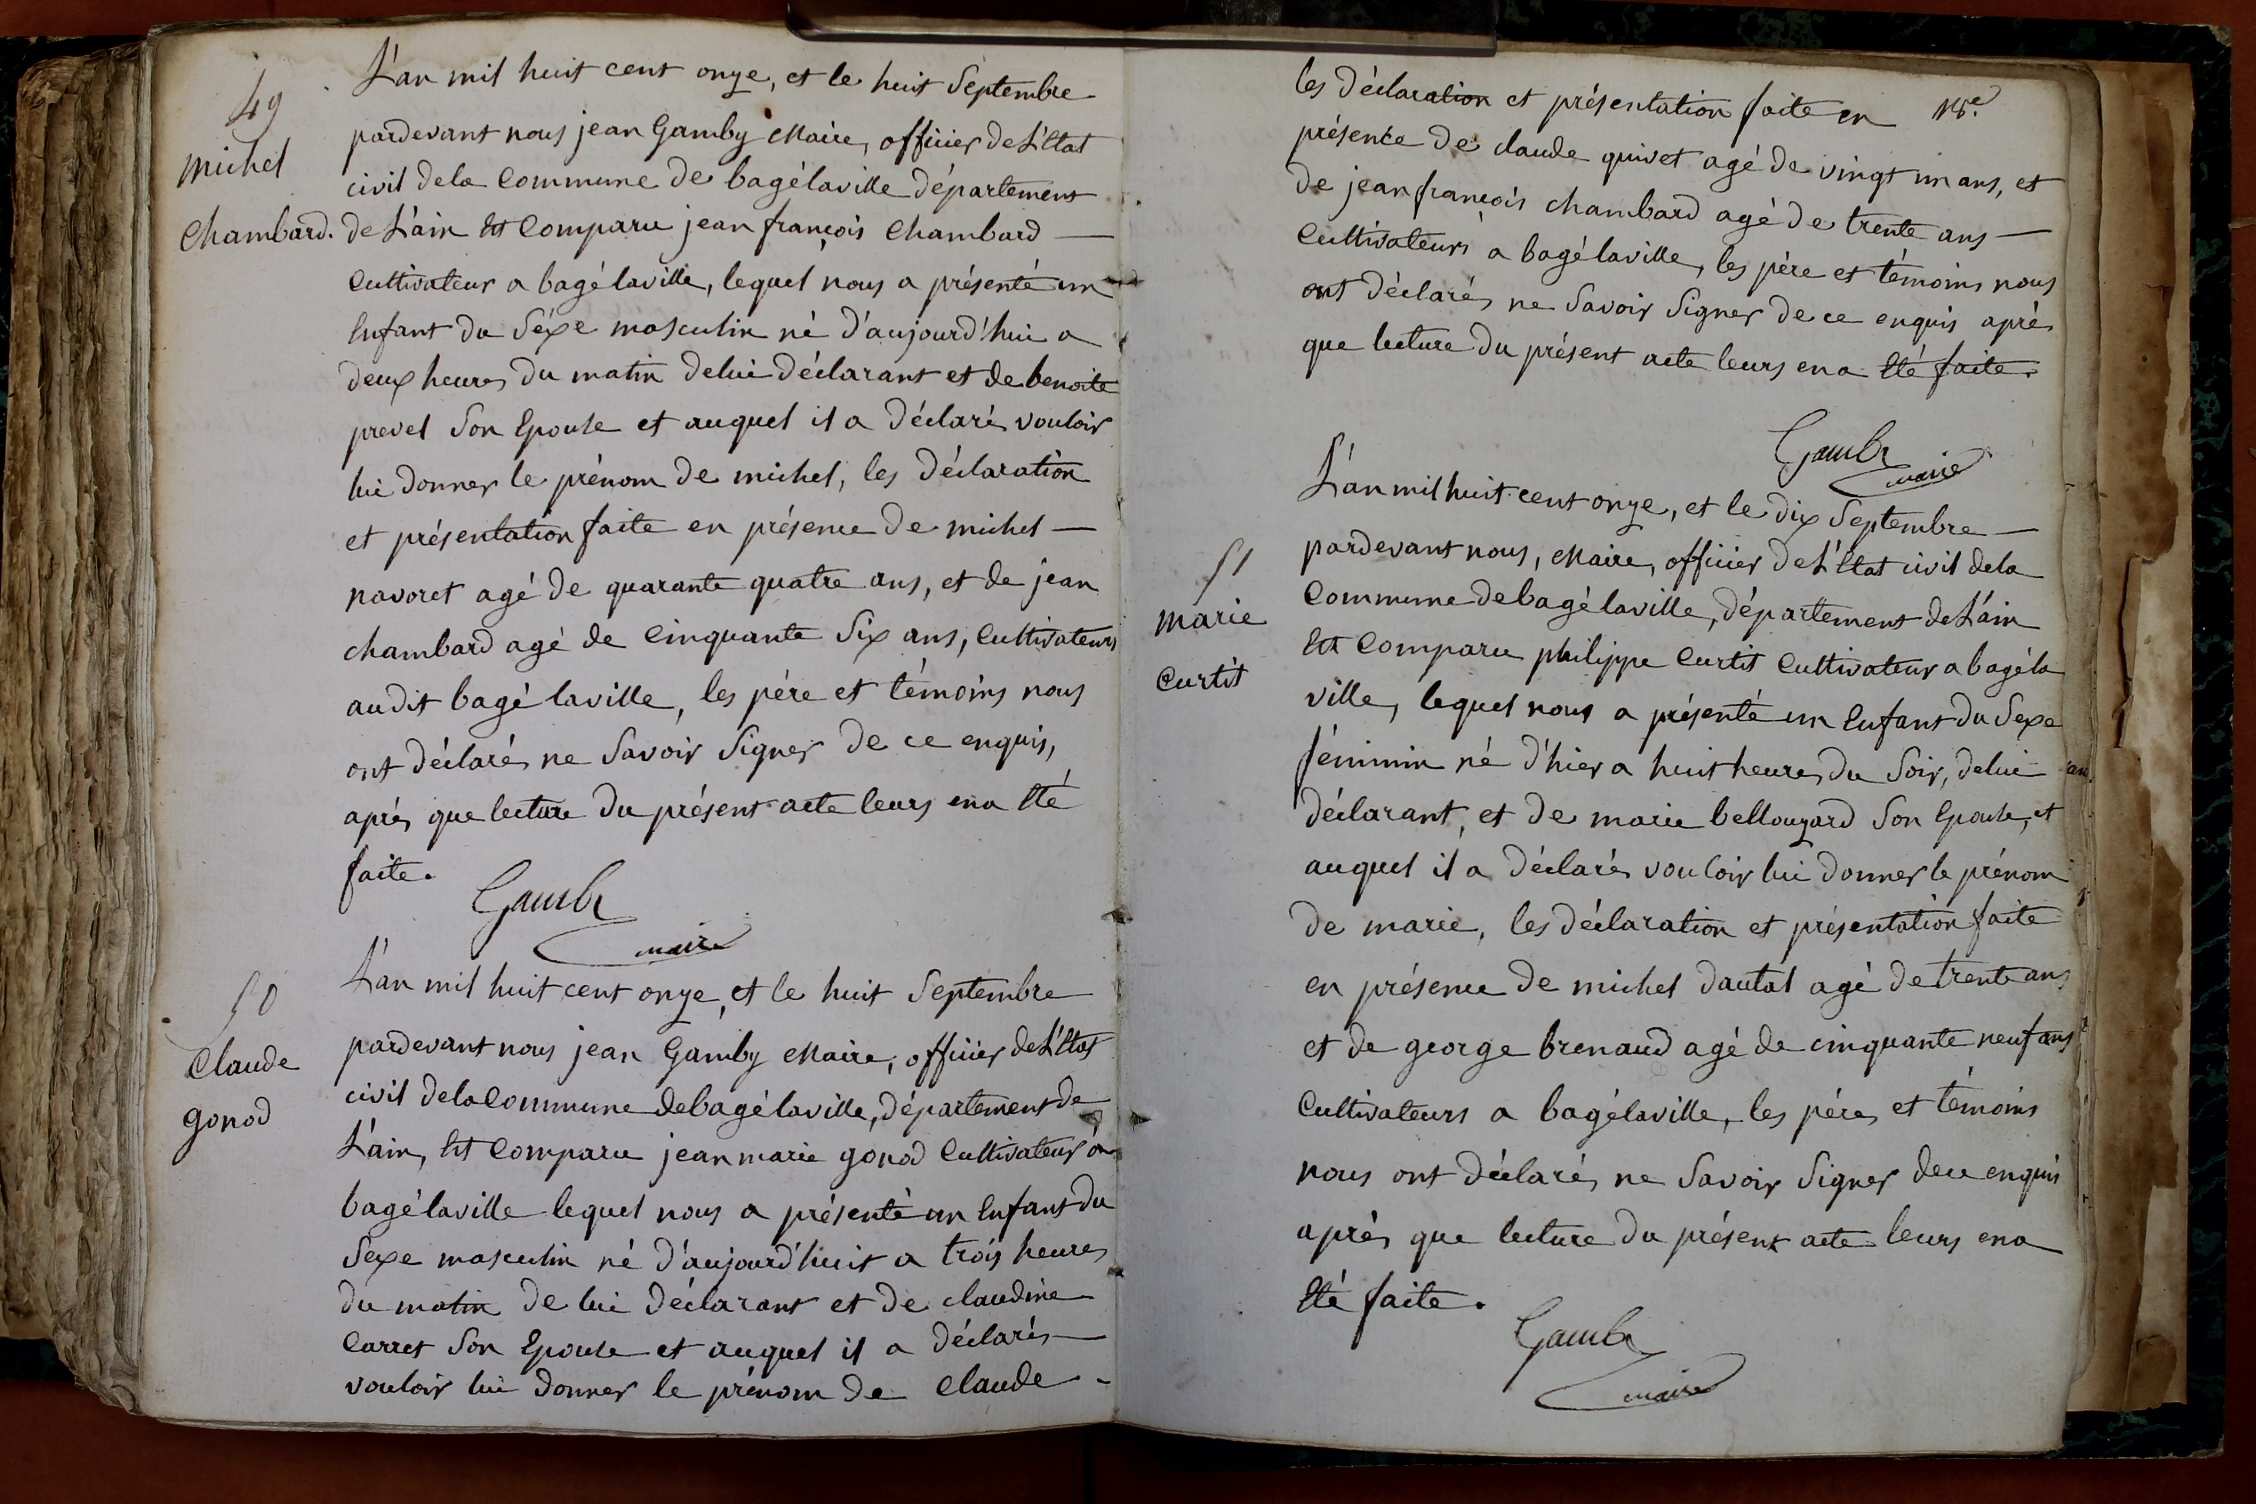 49
michel
Chambard.
L'an mil huit cent onze, et le huit Septembre
pardevant nous jean Gamby Maire, officier de L'Etat
civil dela Commune de bagélaville département
de L'ain Est Comparu jean françois Chambard
Cultivateur a bagé laville, lequel nous a présenté un
Enfant du Séxe masculin né d'aujourd'hui a
deux heures du matin delui déclarant et de benoite
prevel Son Epouse et auquel il a déclarés vouloir
lui donner le prénom de michel, les déclaration
et présentation faite en présence de michel
navoret agé de quarante quatre ans, et de jean
chambard agé de Cinquante Six ans, Cultivateurs
audit bagé laville, les pére et témoins nous
ont déclarés ne Savoir Signer de ce enquis,
après que lecture du présent acte leurs ena Eté
faite.
Gamby
maire
50
Claude
gonod
L'an mil huit cent onze, et le huit Septembre
pardevant nous jean Gamby Maire, officier de L'Etat
civil dela Commune debagélaville, département de
L'ain, Est Comparu jean marie gonod Cultivateur à
bagélaville lequel nous a présenté un Enfant du
Sexe masculin né d'aujourd'huit a trois heures
du matin de lui déclarant et de claudine
Carret Son Epouse et auquel il a déclarés
vouloir lui donner le prénom de Claude
les déclaration et présentation faite en
présence de claude quivet agé de vingt un ans, et
de jean françois chambard agé de trente ans
Cultivateurs a bagélaville, les père et témoins nous
ont déclarés ne Savoir Signer de ce enquis après
que lecture du présent acte leurs ena Eté faite.
Gamby
maire
51
Marie
Curtit
L'an mil huit cent onze, et le dix Septembre
pardevant nous, Maire, officier de L'Etat civil dela
Commune debagé laville, département de L'ain
Est Comparu philippe Curtit Cultivateur a bagéla
ville, lequel nous a présenté un Enfant du Sexe
féminin né d'hier a huit heures du Soir, delui
déclarant, et de marie bellouzard Son Epouse, et
auquel il a déclarés vouloir lui donner le prénom
de marie, les déclaration et présentation faite
en présence de michel dautal agé de trente ans
et de george brenaud agé de cinquante neuf ans
Cultivateurs a bagélaville, les pére, et témoins
nous ont déclarés ne Savoir Signer dece enquis
après que lecture du présent acte leurs ena
Eté faite.
Gamby
maire